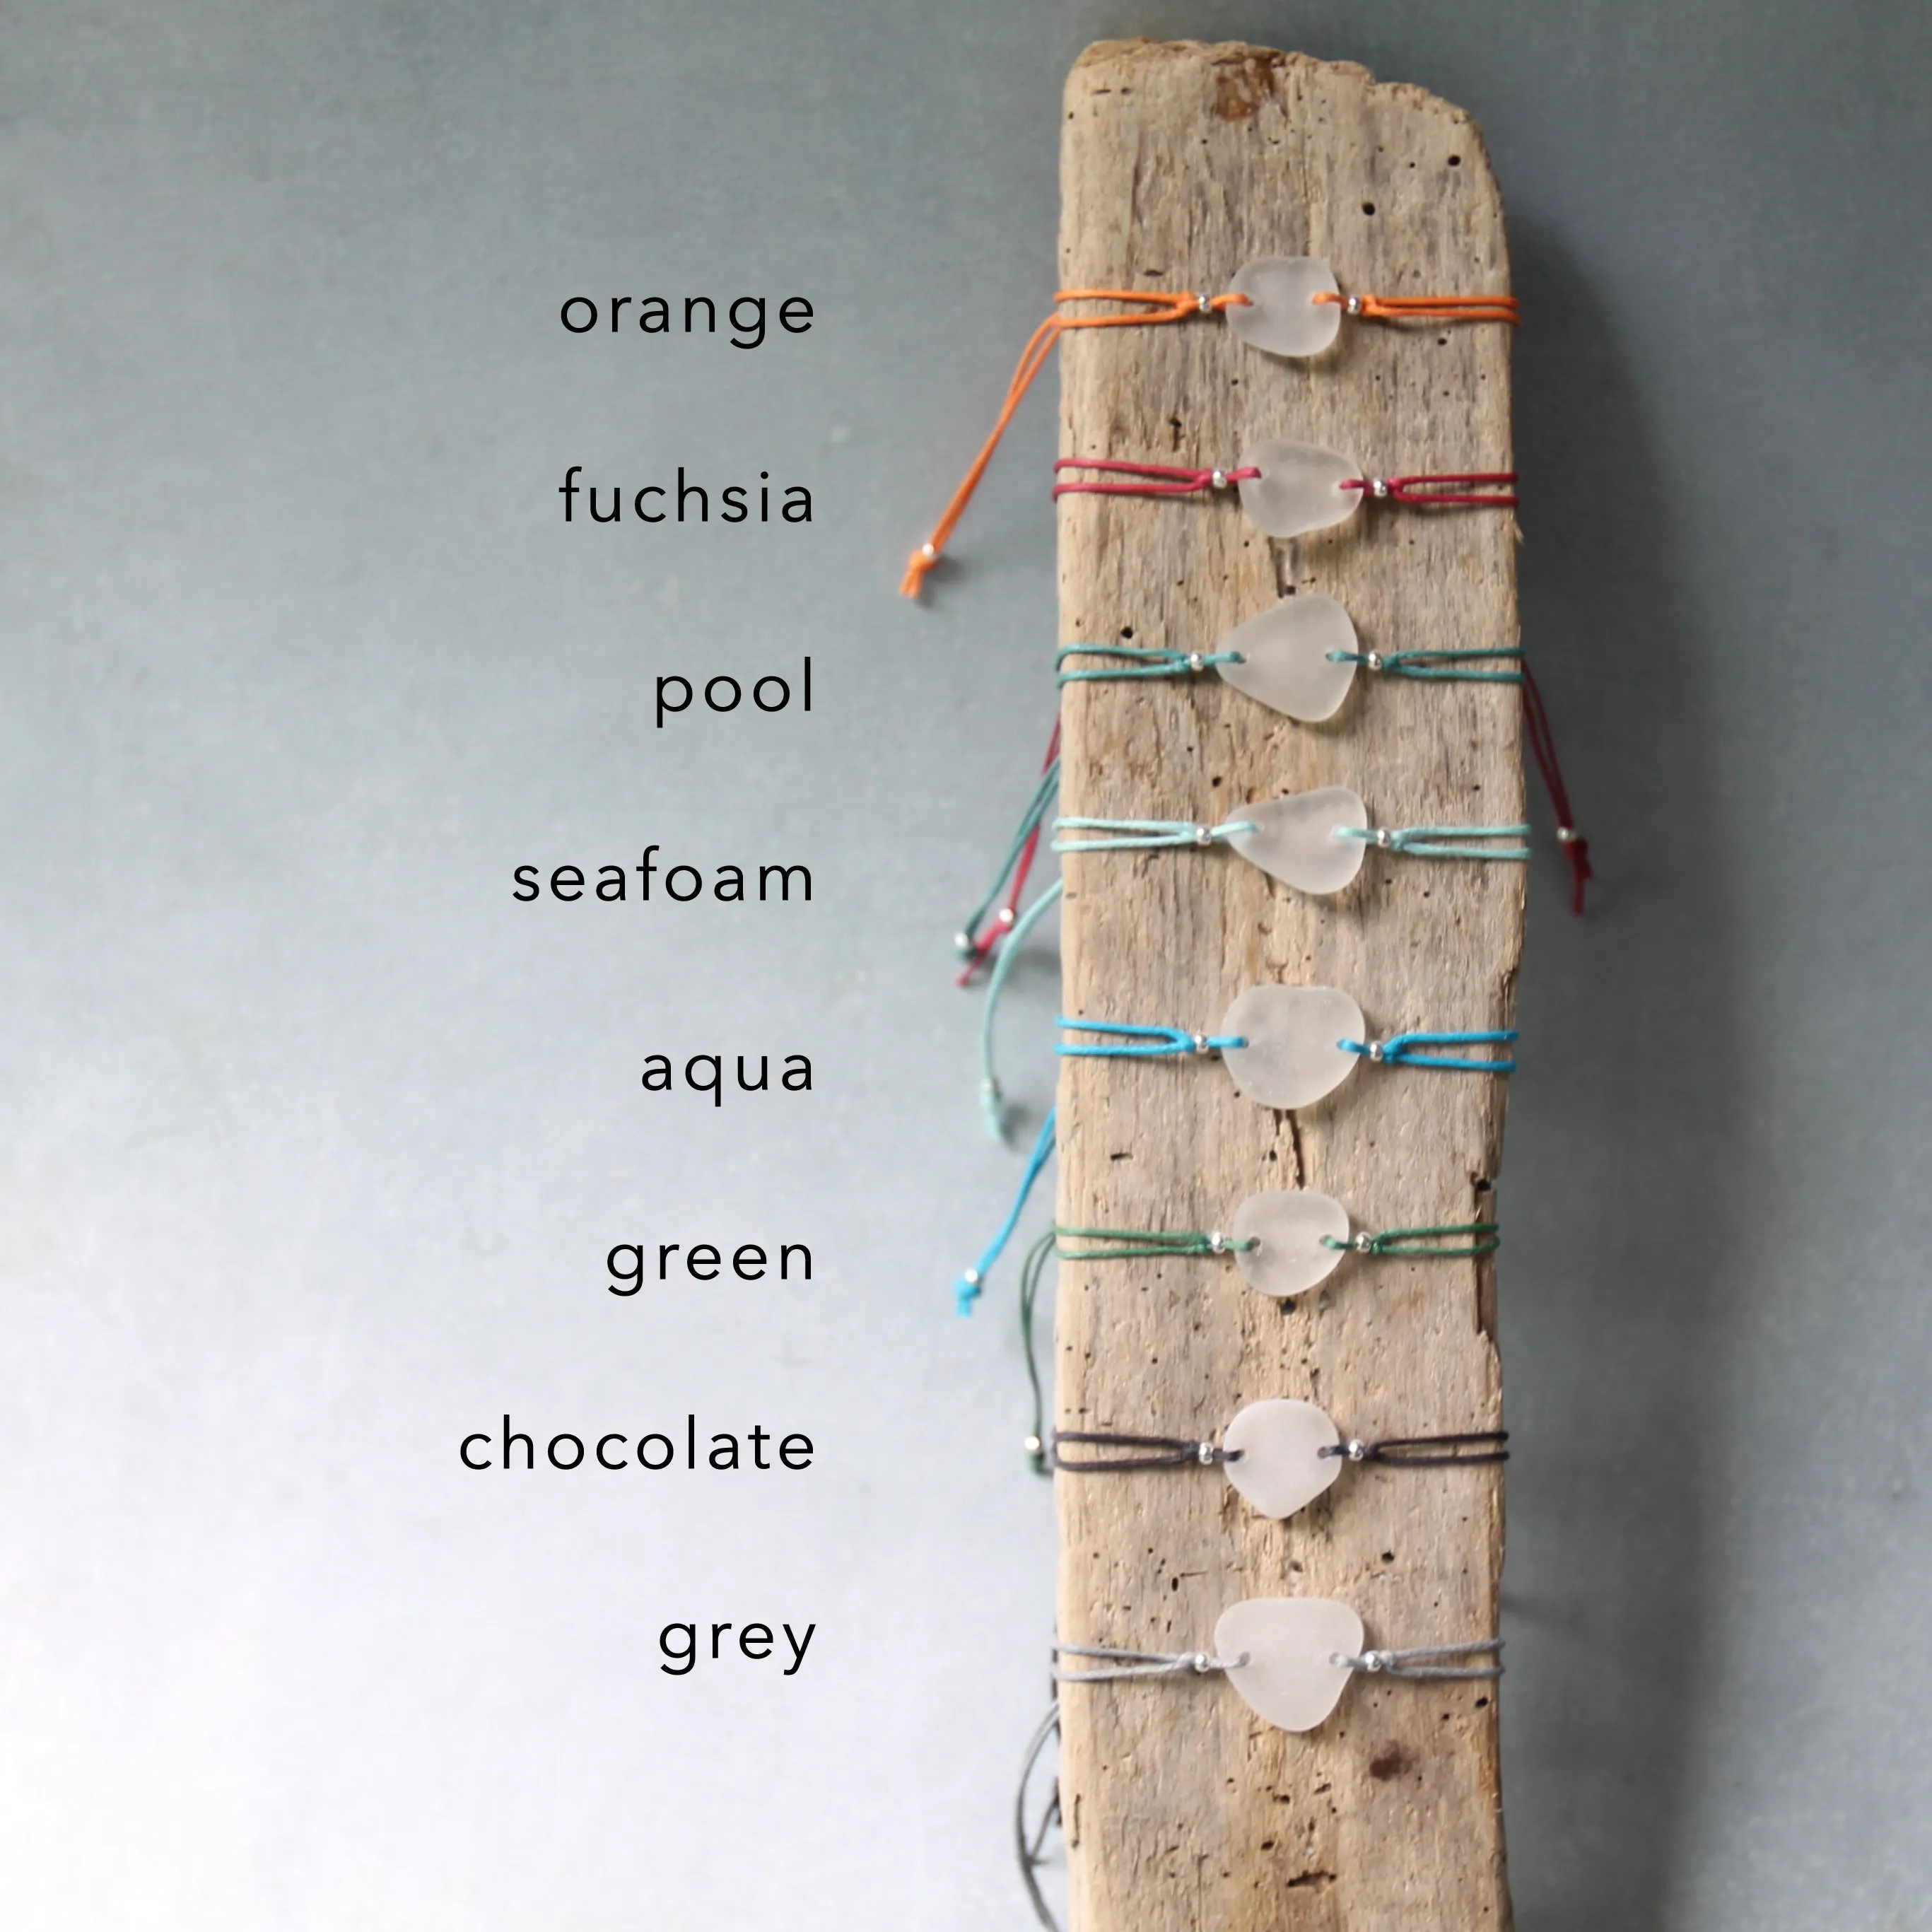 orange
fuchsia
pool
seafoam
aqua
green
chocolate
grey